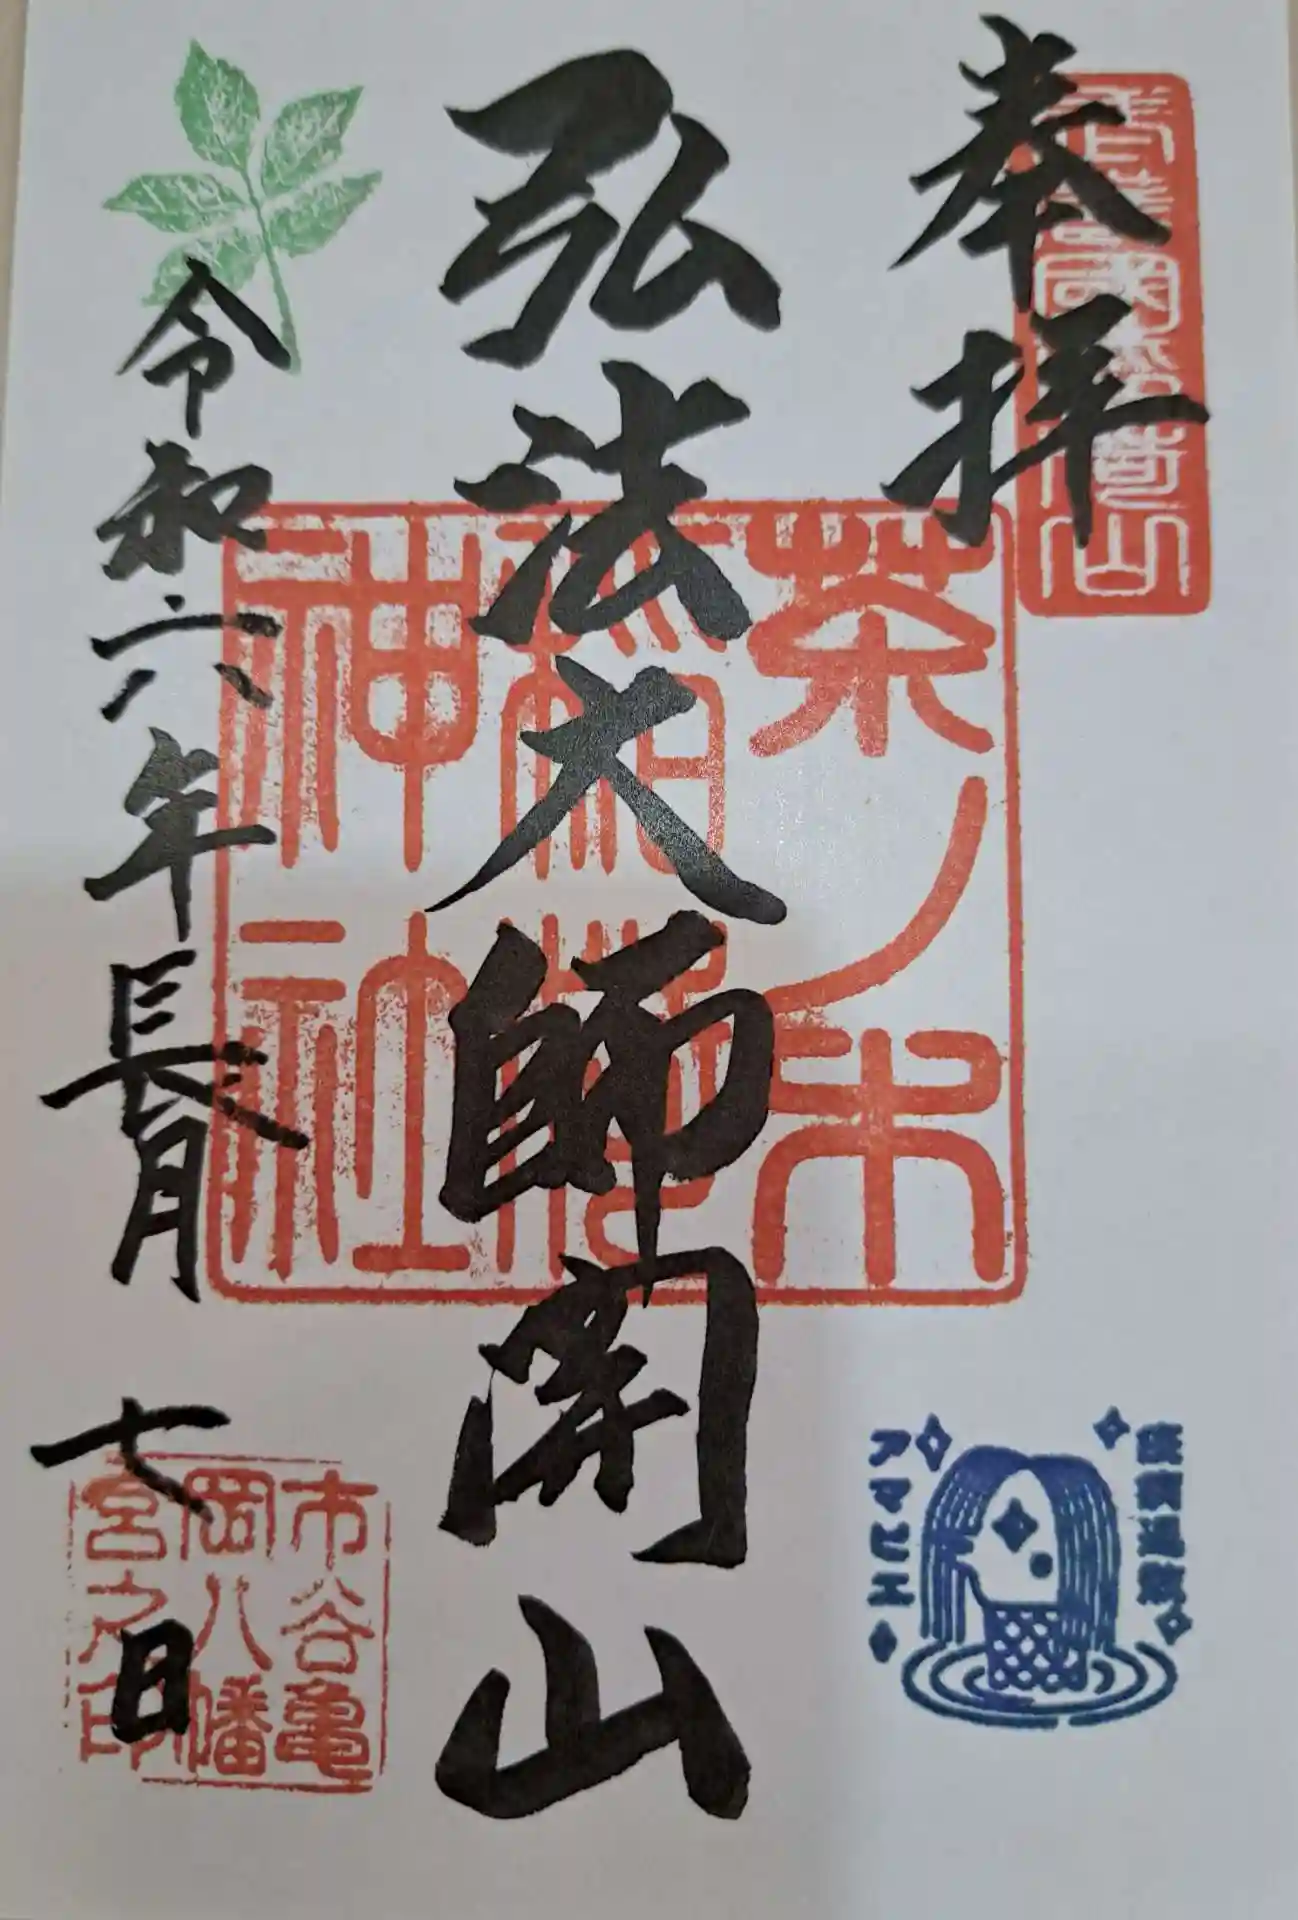 奉拝
弘法大師開山
茶ノ木
稲荷
神社
令和六年長月七日
市谷亀
岡八幡
宮之印
アマビエ